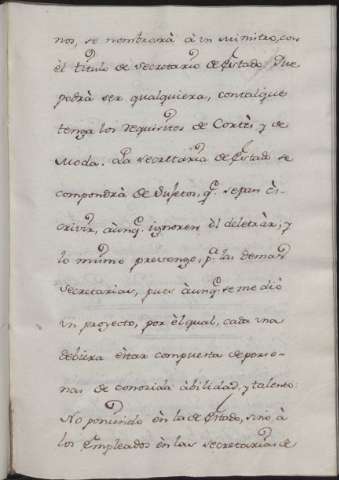 nos, se nombrarà à un Ministro, con
èl titulo de Secretario de Estado. Que
podrà ser qualquiera, contalque
tenga los requisitos de Cortès, y de
Moda. La Secretaria de Estado se
compondrà de Sujetos, q.e sepan ès-
crivir, àunq.e ignoren èl deletrèar; y
lo mismo prevengo, p.a las demas
Secretarias, pues àunq.e se me diò
un proyecto, por èl qual, cada una
debiera èstar compuesta de perso-
nas de conocida àbilidad, y talento:
No poniendo èn la de Estado, sino à
los Empleados èn las Secretarias de